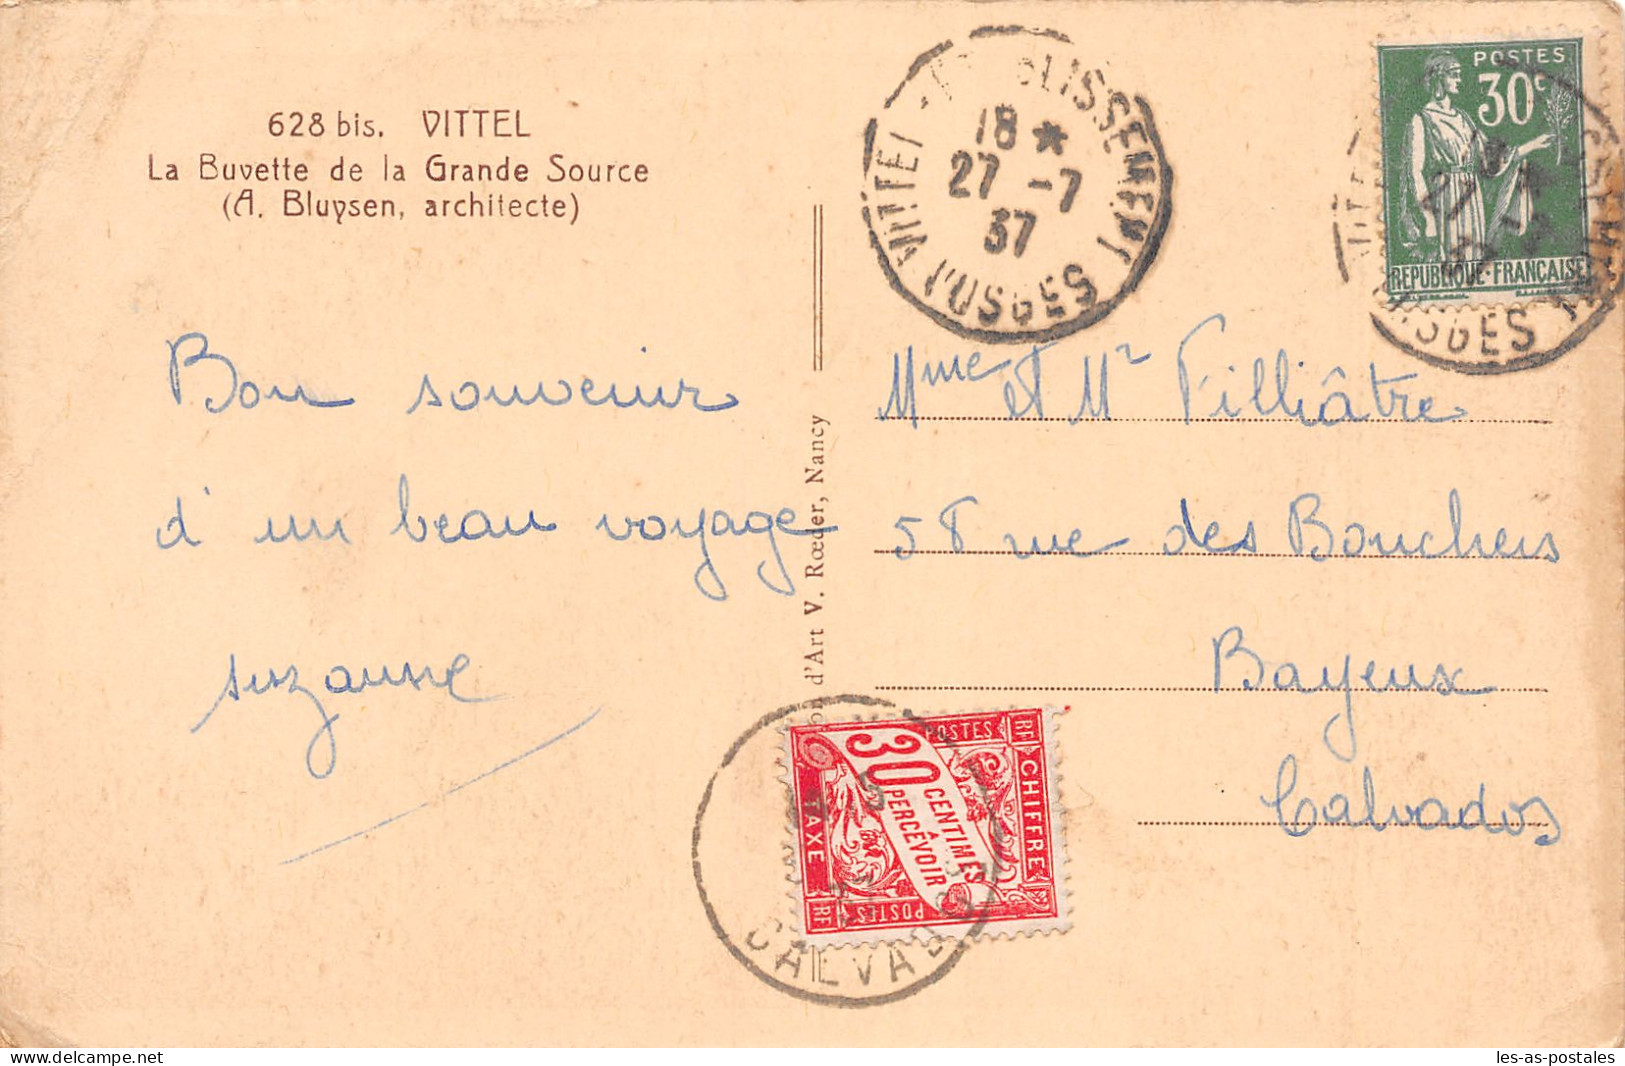 628 bis. VITTEL
La Buvette de la Grande Source
(A. Bluysen, architecte)
Bon souvenir
d'un beau voyage
suzanne
d'Art V. Rœder, Nancy
VITTEL
VOSGES
18 *
27 -7
37
POSTES
30c
REPUBLIQUE·FRANÇAISE
27
VOSGES
Mme et Mr Filliâtre
58 rue des Bouchers
Bayeux
Calvados
POSTES
RF
CHIFFRE
30 CENTIMES
À
PERCEVOIR
TAXE
RF
POSTES
CALVADOS
delcampe.net
les-as-postales